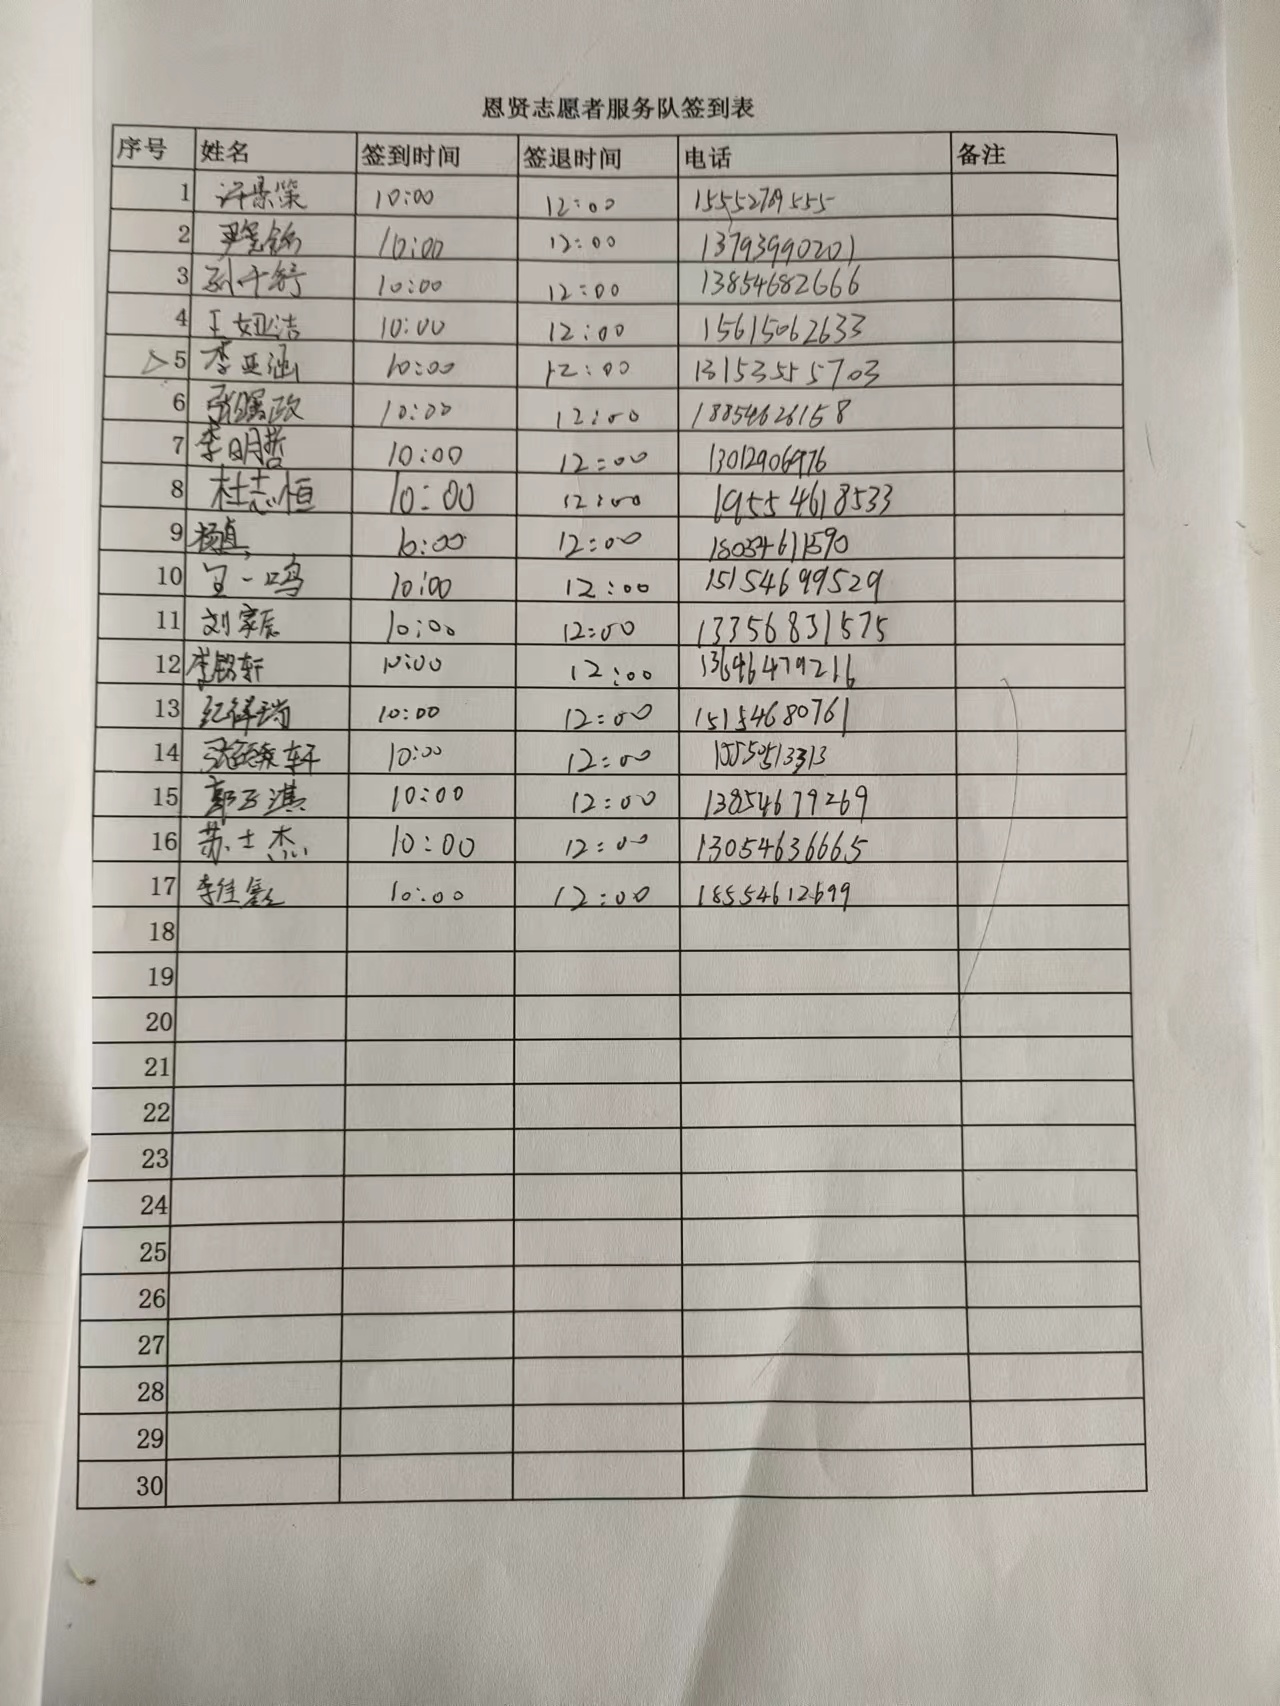 恩贤志愿者服务队签到表
序号 姓名 签到时间 签退时间 电话 备注
1 10:00 12:00
2 10:00 12:00 13793990201
3 孙千舒 10:00 12:00 13854682666
4 王妞洁 10:00 12:00 15615062633
5 李亚涵 10:00 12:00 13153555703
6 10:00 12:00 18854626158
7 李明哲 10:00 12:00 13012906976
8 杜志恒 10:00 12:00 19554618533
9 杨卓 10:00 12:00 18054611590
10 王一鸣 10:00 12:00 15154699529
11 刘家辰 10:00 12:00 13356831575
12 李铭轩 10:00 12:00 13646479216
13 纪祥瑞 10:00 12:00 15154680761
14 10:00 12:00
15 郭玉淇 10:00 12:00 13854679269
16 苏士杰 10:00 12:00 13054636665
17 10:00 12:00 18554612699
18
19
20
21
22
23
24
25
26
27
28
29
30